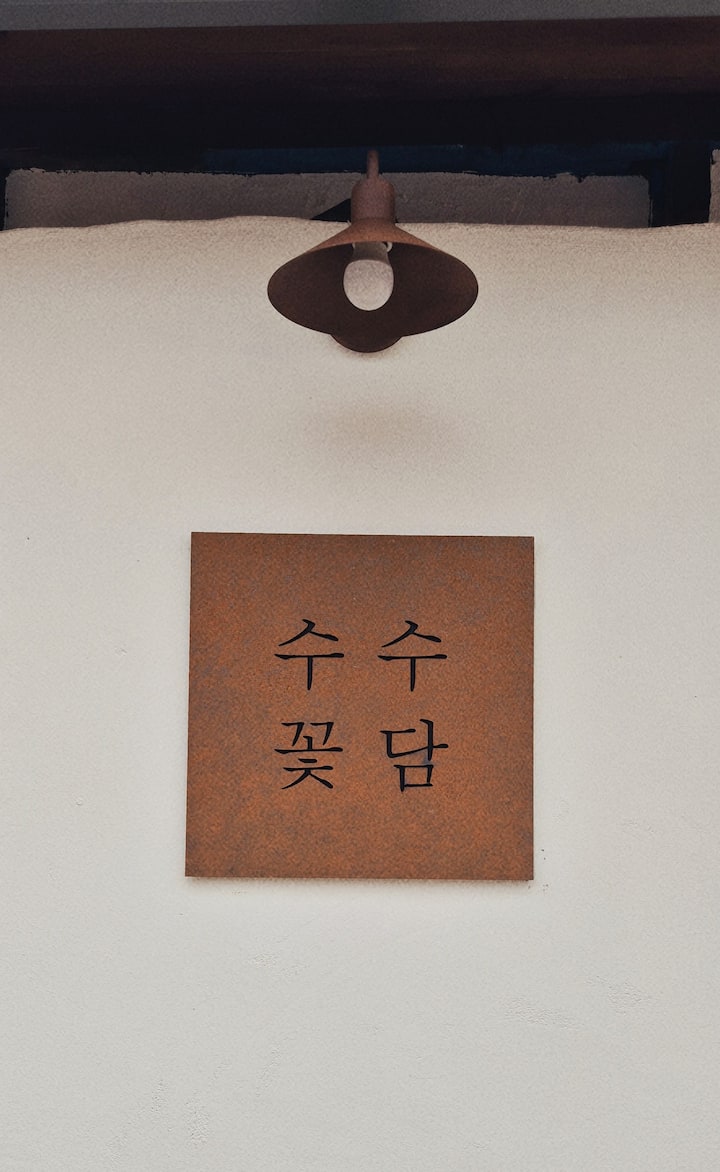 수수
꽃담